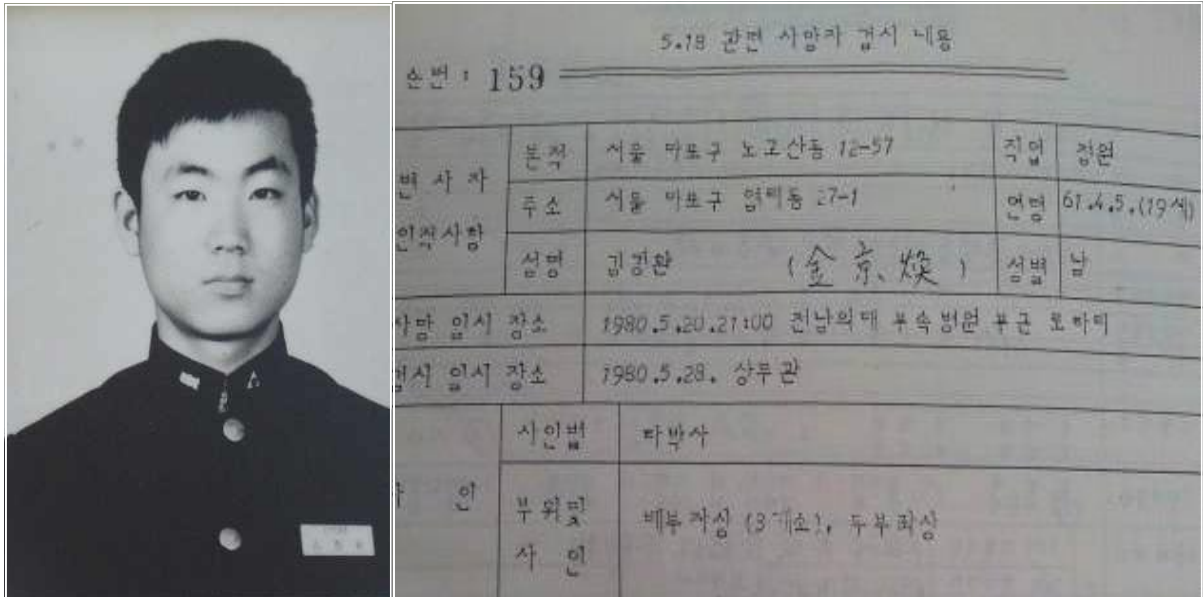 5.18 관련 사망자 검시 내용
순번 : 159
변사자 인적사항
본적 서울 마포구 노고산동 12-57 직업 점원
주소 서울 마포구 염리동 27-1 연령 61.4.5.(19세)
성명 김경환 (金京煥) 성별 남
사망 일시 장소 1980.5.20.21:00 전남의대 부속병원 부근
검시 일시 장소 1980.5.28. 상무관
사인
사인별 타박사
부위및 사인 배부좌상 (3개소), 두부좌상